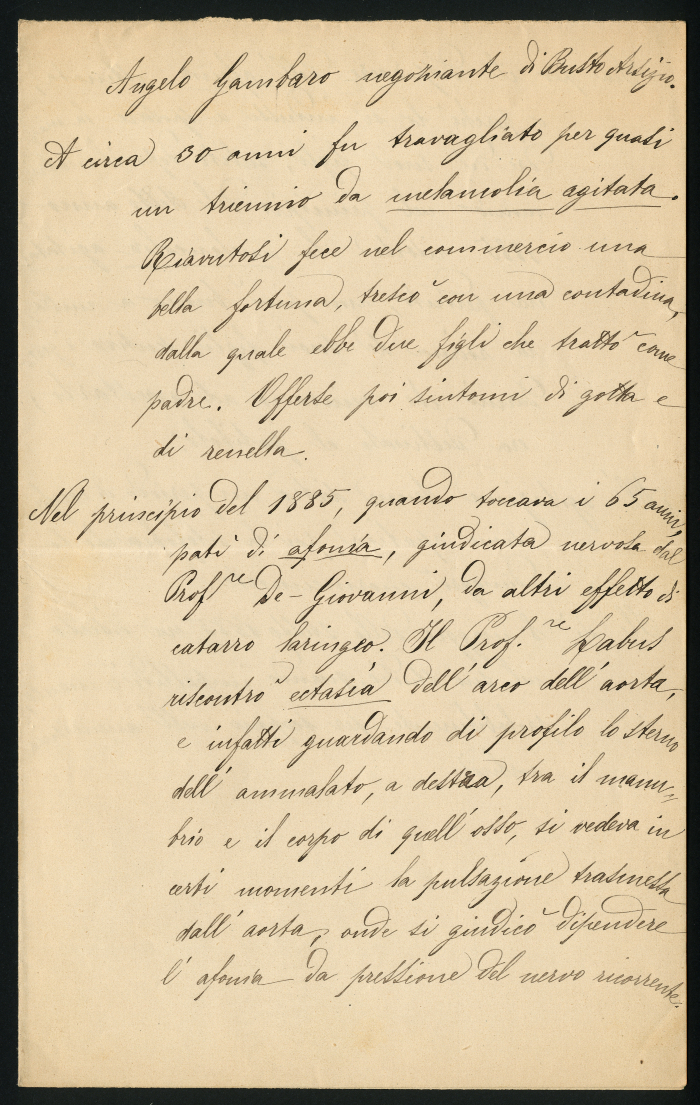 Angelo Gambaro negoziante di Busto Arsizio.
A circa 30 anni fu travagliato per quasi
un triennio da melancolia agitata.
Riavutosi fece nel commercio una
bella fortuna, trescò con una contadina,
dalla quale ebbe due figli che trattò come
padre. Offerse poi sintomi di gotta e
di renella.
Nel principio del 1885, quando toccava i 65 anni,
patì di afonia, giudicata nervosa dal
Prof.re De-Giovanni, da altri effetto di
catarro laringeo. Il Prof.re Labus
riscontrò ectasia dell'arco dell'aorta,
e infatti guardando di profilo lo sterno
dell'ammalato, a destra, tra il manu-
brio e il corpo di quell'osso, si vedeva in
certi momenti la pulsazione trasmessa
dall'aorta, onde si giudicò dipendere
l'afonia da pressione del nervo ricorrente.